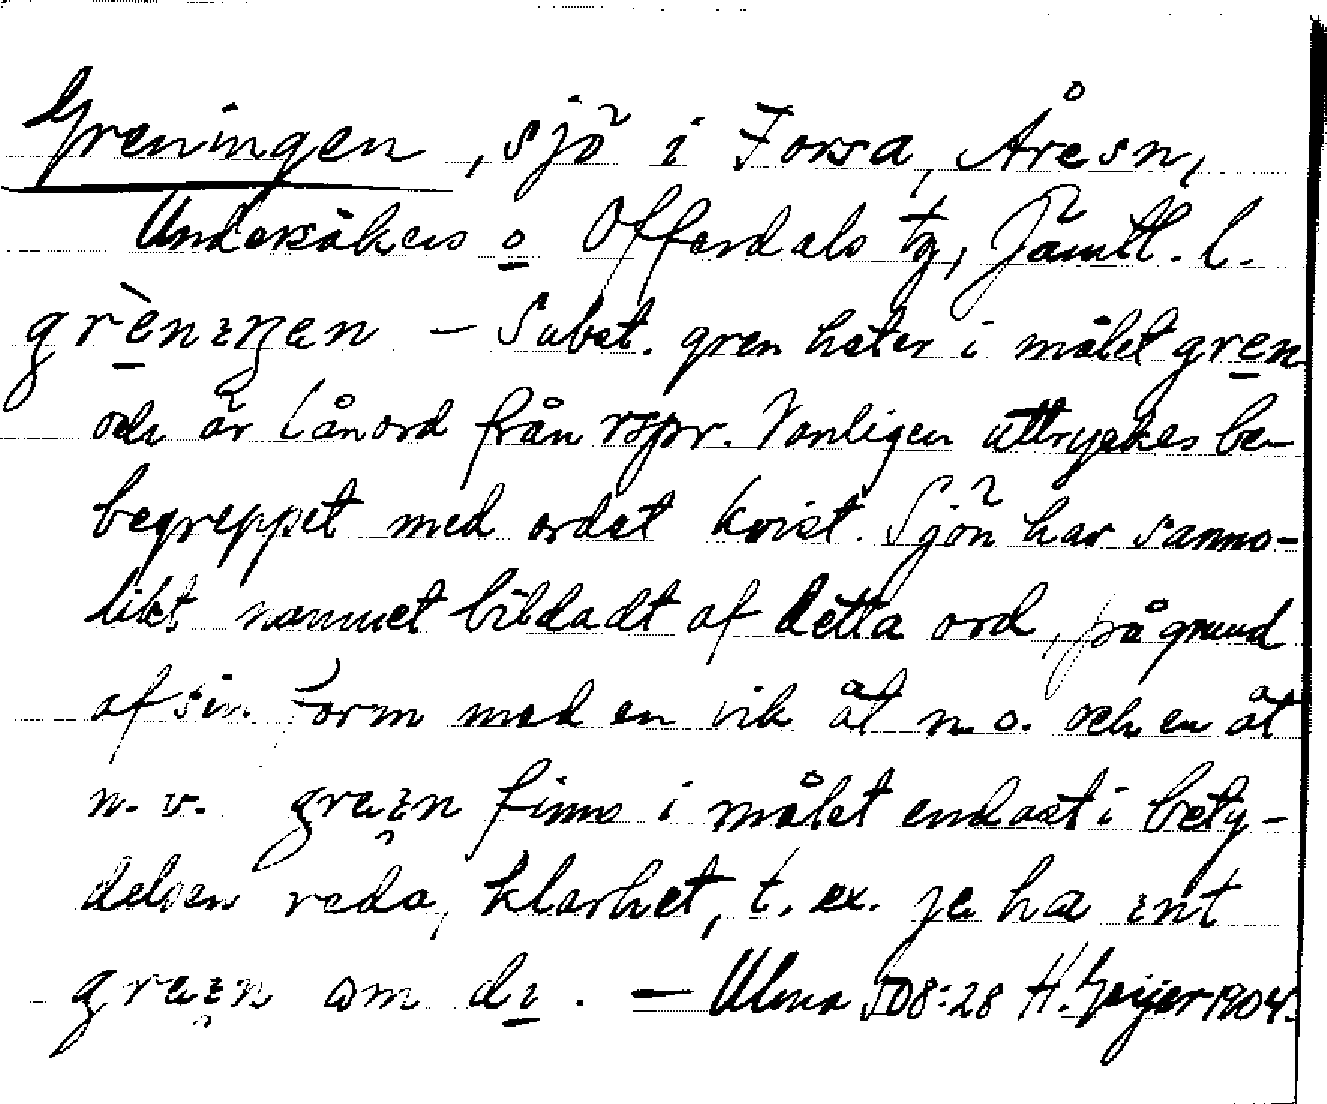 Greningen, sjö i Forsa, Åresn,
Undersåkers o Offerdals tg, Jämtl. l.
grèniŋen – Subst. gren heter i målet gren
och är lånord från rspr. Vanligen uttryckes be-
begreppet med ordet kvist. Sjön har sanno-
likt namnet bildadt af detta ord, på grund
af sin form med en vik åt n.o. och en åt
n.v. græin finns i målet endast i bety-
delsen reda, klarhet, t. ex. je ha int
græin om di. — Ulma 508:28 H. Geijer 1904.